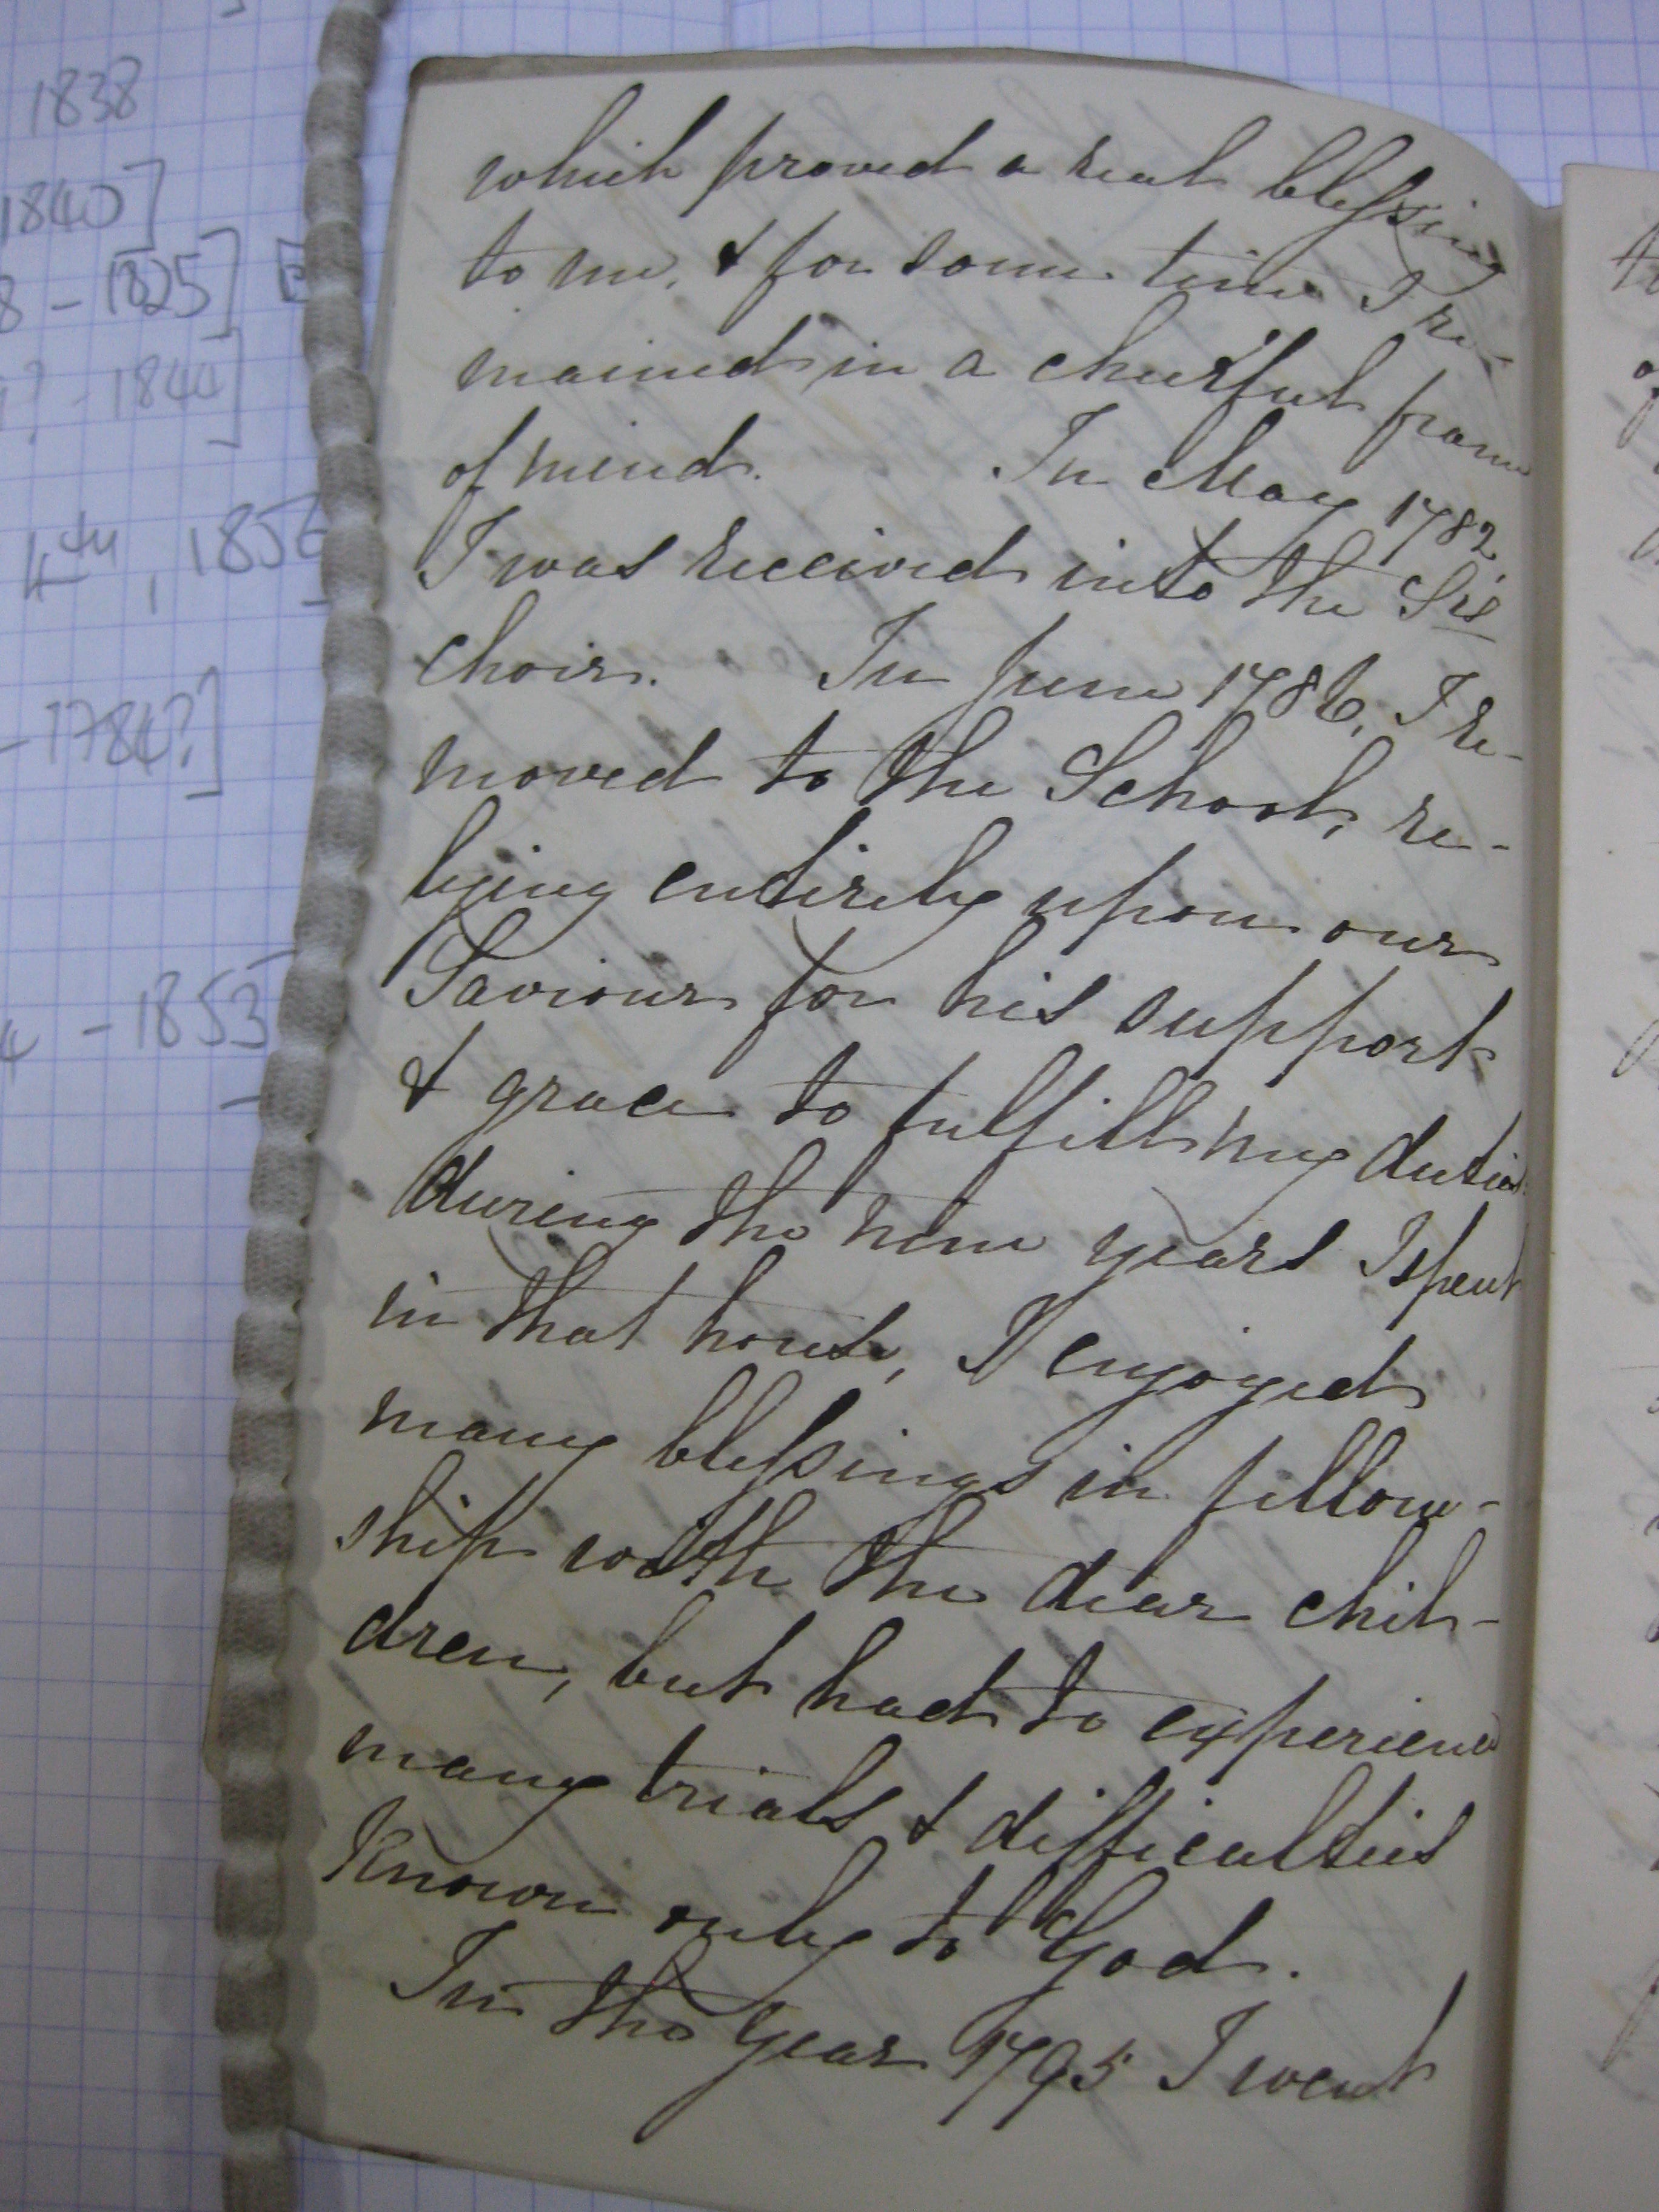 1838
1840]
8 - 1825]
? - 1844]
4th, 1856
- 1784?]
4 - 1853
which proved a real blessing
to me, & for some time I re-
mained in a cheerful frame
of mind. In May 1782,
I was received into the Sis
choir. In June 1786, I re-
moved to the School, re-
lying entirely upon our
Saviour for his support
& grace to fulfill my duties
during the nine years I spent
in that house, I enjoyed
many blessings in fellow-
ship with the dear chil-
dren, but had to experience
many trials & difficulties
known only to God.
In the year 1795 I went